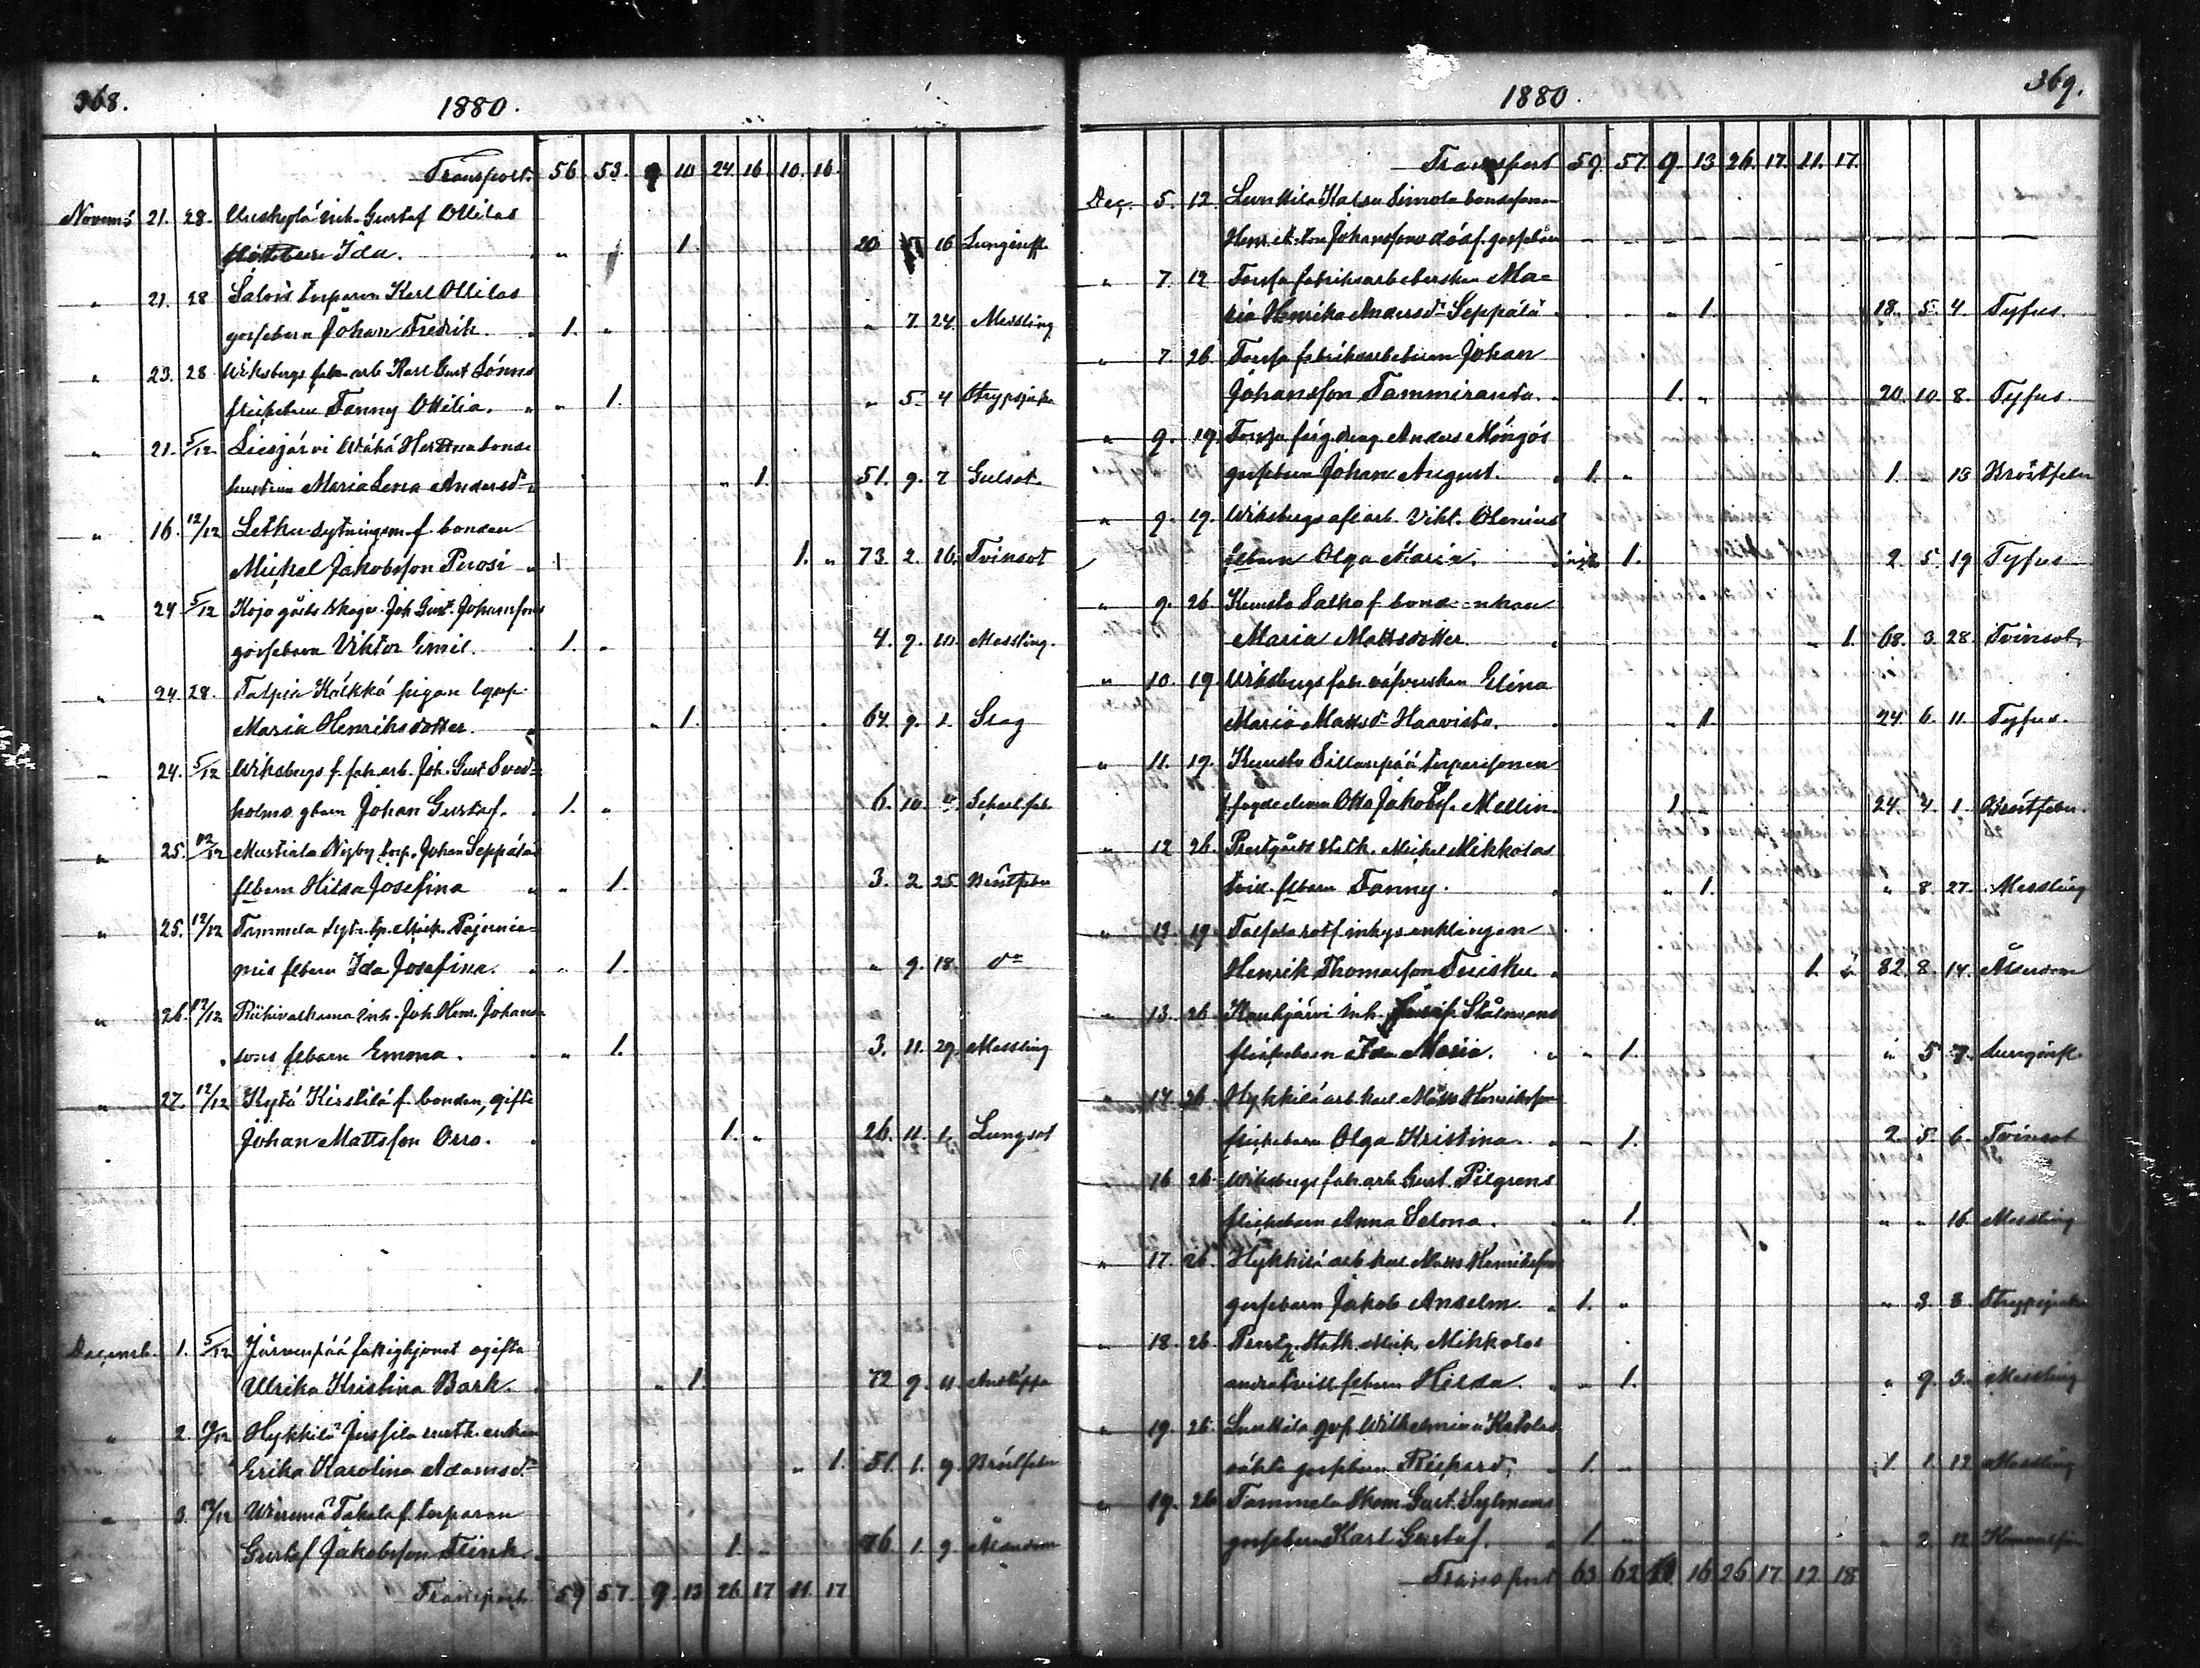 368.
1880.
Transport. 56. 53. 9 10 24. 16. 10. 16.
Novemb 21. 28. inh. Gustaf Ottilas
Ida. " 1. 20 16 Lunginfl
" 21. 28 Salois torparen Karl Ottilas
gossebarn Johan Fredrik. " 1. " " 7. 24. Messling
" 23. 28 Wiksbergs fabr arb Karl Gust Lönns
flickebarn Fanny Otilia. " " 1. " 5. 4 Strypsjuka
" 21. 5/12 Liesjärvi bonde
hustrun Maria Lena Andersdr " 1. 51. 9. 7 Gulsot.
" 16. 12/12 Lethu sytningsm. f. bonden
Michel Jakobsson Perosi 1. " 73. 2. 16. Tvinsot
" 24 5/12 Kojo gårds Joh. Gust. Johanssons
gossebarn Viktor Emil. 1. " 4. 9. 10. Messling.
" 24. 28. Talpia Kälkkä pigan
Maria Henriksdotter. " 1. 64. 9. 1. Slag
" 24. 5/12 Wiksbergs f. fab. arb. Joh. Gust Sved-
holms gbarn Johan Gustaf. 1. " 6. 10. 4.
" 25. 12/12 Mustiala Nyby torp. Johan Seppäläs
flbarn Hilda Josefina " " 1. 3. 2 25. Bröstfeber
" 25. 12/12 Tammela Mich.
flbarn Ida Josefina. " " 1. " 9. 18. do
" 26. 12/12 Riihivalkama Inh. Joh. Henr. Johans-
sons flbarn Emma. " " 1. 3. 11. 29. Messling
" 27. 12/12 Kytö Kirstilä f. bonden, gifte
Johan Mattsson Orro. 1. " 26. 11. 1. Lungsot
Decemb. 1. 5/12 Järvenpää fattighjonet ogifta
Ulrika Kristina Bark. " 1. 72 9. 11.
" 2. Hykkilä Jussila enkan
Erika Karolina Adamsdr " 1. 51. 1. 9. Bröstfeber
" 3. 12/12 Takala f. torparen
Gustaf Jakobsson Flink. 1. " 76. 1. 9. Ålderdom
Transport 59 57. 9. 13 26. 17 11. 17
1880.
369.
Transport 59. 57. 9. 13 26. 17. 11. 17.
Dec. 5. 12. Lunkila Katsu Simola bondesonen
Henrik Johanssons dödf. gossebarn
" 7. 12 Forssa fabriksarbeterskan Ma-
ria Henrika Andersdr Seppälä " 1. 18. 5. 4. Tyfus.
" 7. 26 Forssa fabriksarbetaren Johan
Johansson Tammiranta. 1. " 20. 10. 8. Tyfus
" 9. 19. Forssa Anders
gossebarn Johan August. 1. " 1. " 13 Bröstfeber
" 9. 19. Wiksbergs arb. Vikt.
flbarn Olga Maria. 1. 2. 5. 19 Tyfus
" 9. 26 Kuusto f. bond-enkan
Maria Mattsdotter. " 1. 68. 3. 28. Tvinsot
" 10. 19. Wiksbergs fab. väfverskan Elina
Maria Mattsdr Haavisto. " 1. 24. 6. 11. Tyfus.
" 11. 19. Kuusto Sillanpää torparsonen
Otto Jakobss. Mellin. 1. 24. 4. 1. Bröstfeber.
" 12 26. Prestgårds Michel Mikkolas
tvill. flbarn Fanny. " 1. " 8. 27. Messling
" 12. 19. inhysenklingen
Henrik Thomasson 1. " 82. 8. 14. Ålderdom
" 13. 26 Kaukjärvi inh. Stålmans
flickebarn Ida Maria. " " 1. " 5 7. Lunginfl.
" 14. 26. Hykkilä arb. karl. Matts Henrikssons
flickebarn Olga Kristina. " " 1. 2. 5. 6. Tvinsot
" 16 26. Wiksbergs fab. arb. Gust. Pilgrens
flickebarn Anna Selma. " " 1. " " 16. Messling
" 17. 26. Hykkilä arb. karl Matts Henrikssons
gossebarn Jakob Anselm. 1. " " 3. 3. Strypsjuka
" 18. 26. Prestg. Mich. Mikkolas
andra tvill. flbarn Hilda. " " 1. " 9. 3. Messling
" 19. 26. Lunkila Wilhelmina
oäkta gossebarn Richard. 1. " 1. 1. 12 Messling
" 19. 26 Tammela Skom. Gust. Sylmans
gossebarn Karl Gustaf. 1. " " 2 12
Transport 63. 62 10. 16 26. 17. 12. 18